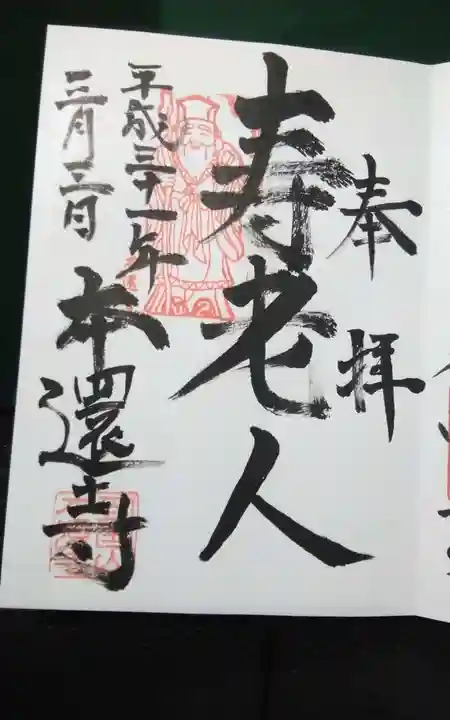 奉拝
寿老人
平成三十一年
三月三日
本還寺